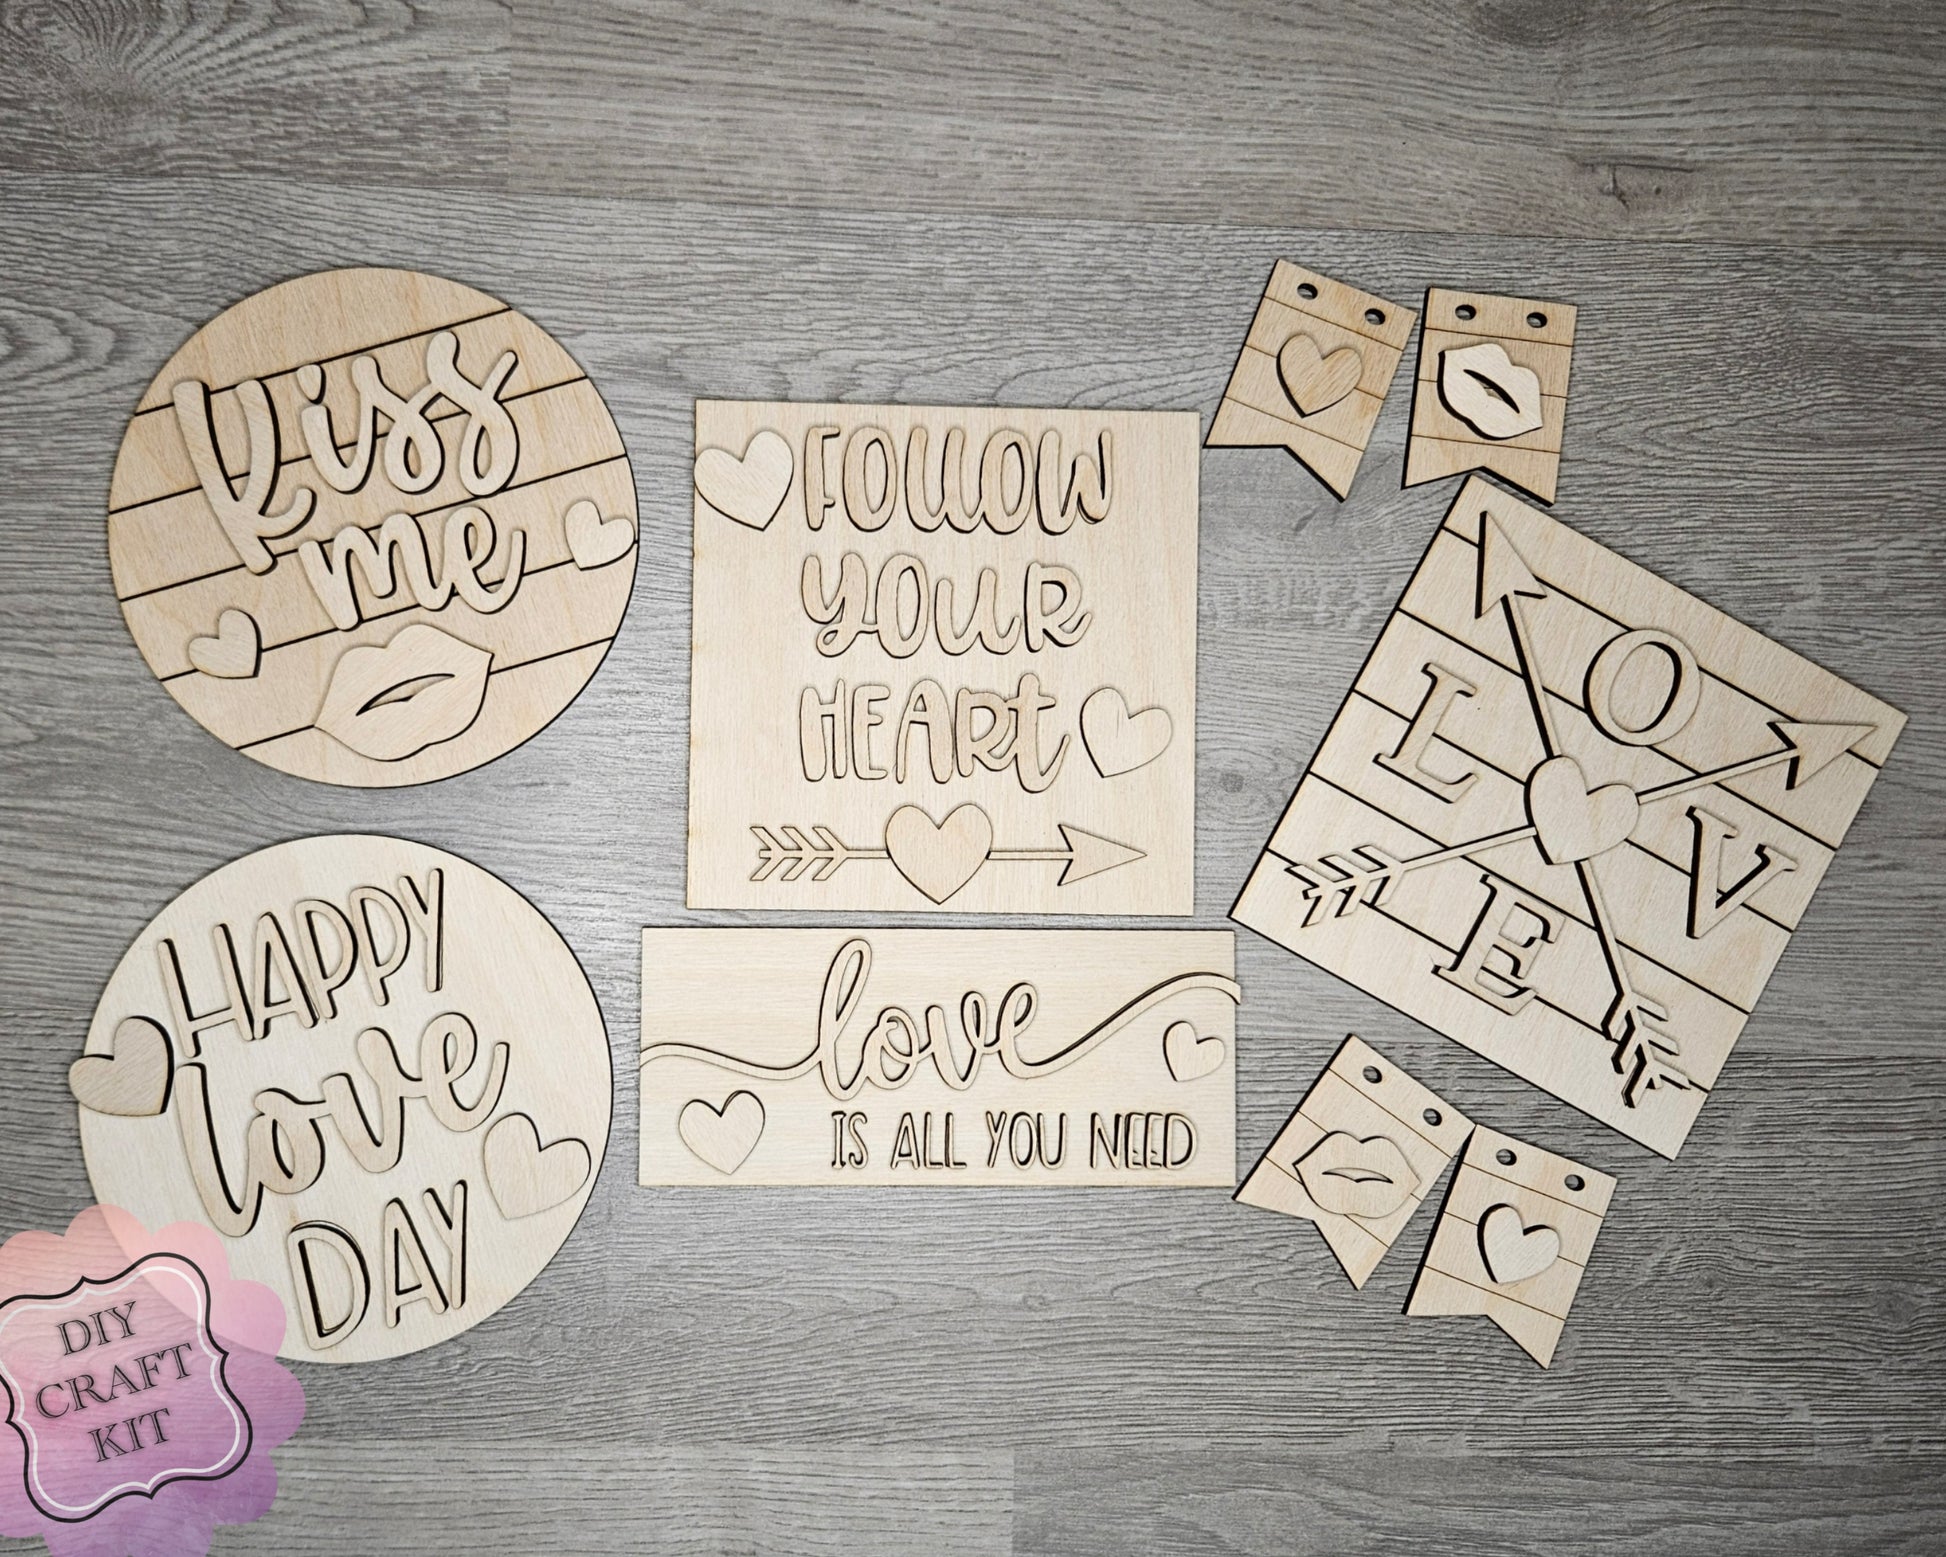 Kiss
me
FOLLOW
YOUR
HEART
L O V E
HAPPY
love
DAY
love
IS ALL YOU NEED
DIY
CRAFT
KIT